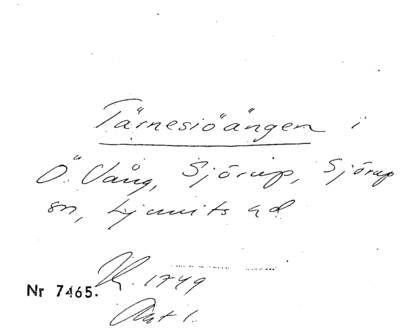 Tärnesiöängen i
Ö. Vång, Sjörup, Sjörup
sn, Ljunits hd
1749
Nr 7465.
Akt 1.